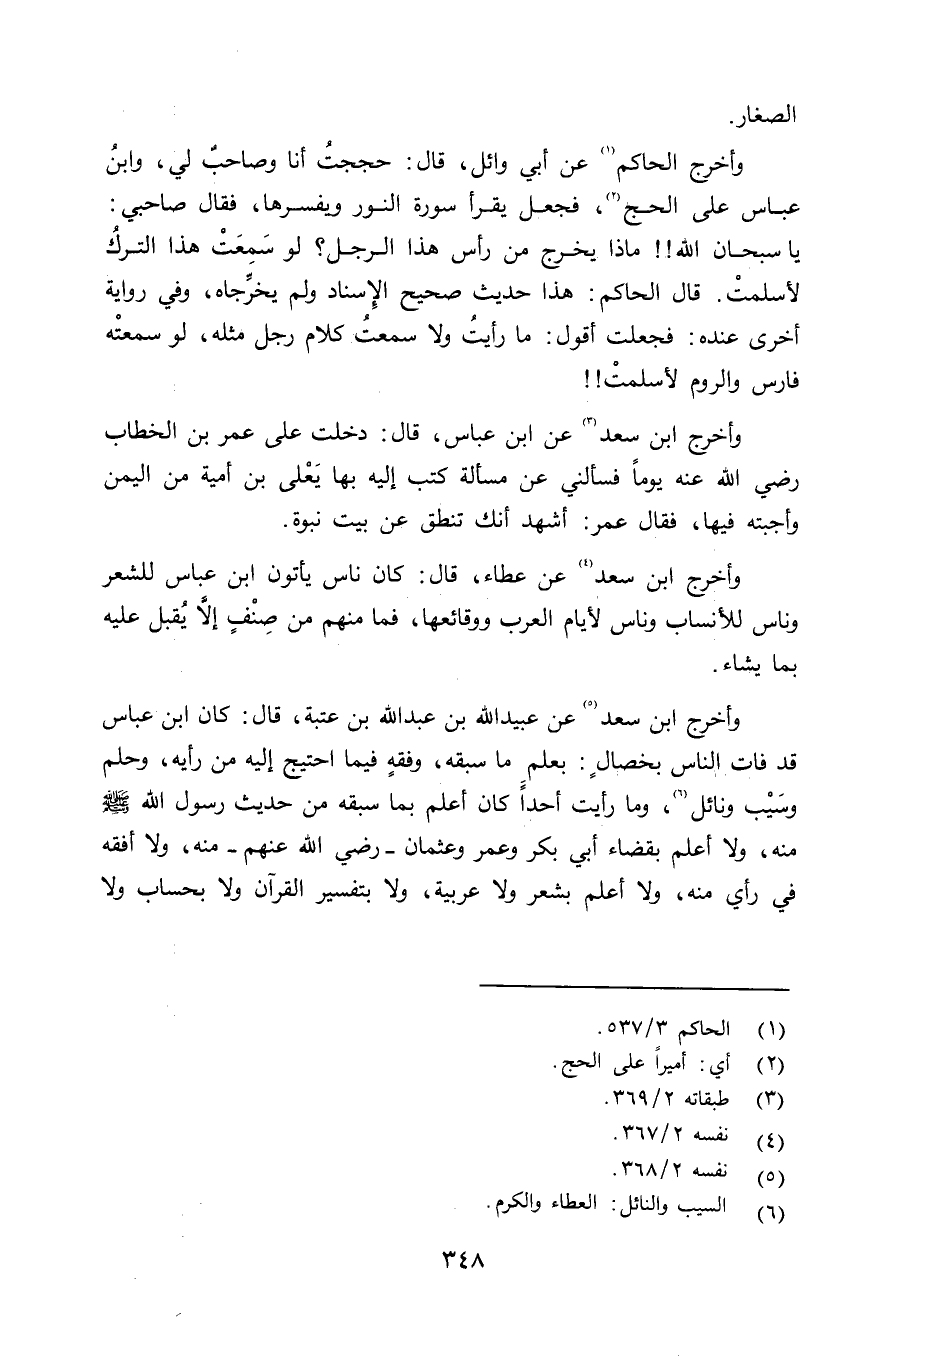 الصغار.
وأخرج الحاكم(١) عن أبي وائل، قال: حججتُ أنا وصاحبٌ لي، وابنُ
عباس على الحج(٢)، فجعل يقرأ سورة النور ويفسرها، فقال صاحبي:
يا سبحان الله!! ماذا يخرج من رأس هذا الرجل؟ لو سَمِعَتْ هذا التركُ
لأسلمتْ. قال الحاكم: هذا حديث صحيح الإسناد ولم يخرِّجاه، وفي رواية
أخرى عنده: فجعلت أقول: ما رأيتُ ولا سمعتُ كلام رجل مثله، لو سمعتْه
فارس والروم لأسلمتْ!!
وأخرج ابن سعد(٣) عن ابن عباس، قال: دخلت على عمر بن الخطاب
رضي الله عنه يوماً فسألني عن مسألة كتب إليه بها يَعْلى بن أمية من اليمن
وأجبته فيها، فقال عمر: أشهد أنك تنطق عن بيت نبوة.
وأخرج ابن سعد(٤) عن عطاء، قال: كان ناس يأتون ابن عباس للشعر
وناس للأنساب وناس لأيام العرب ووقائعها، فما منهم من صِنْفٍ إلَّا يُقبل عليه
بما يشاء.
وأخرج ابن سعد(٥) عن عبيدالله بن عبدالله بن عتبة، قال: كان ابن عباس
قد فات الناس بخصالٍ: بعلمِ ما سبقه، وفقهٍ فيما احتيج إليه من رأيه، وحلم
وسَيْبٍ ونائل(٦)، وما رأيت أحداً كان أعلم بما سبقه من حديث رسول الله ﷺ
منه، ولا أعلم بقضاء أبي بكر وعمر وعثمان ـ رضي الله عنهم ـ منه، ولا أفقه
في رأي منه، ولا أعلم بشعر ولا عربية، ولا بتفسير القرآن ولا بحساب ولا
(١) الحاكم ٥٣٧/٣.
(٢) أي: أميراً على الحج.
(٣) طبقاته ٣٦٩/٢.
(٤) نفسه ٣٦٧/٢.
(٥) نفسه ٣٦٨/٢.
(٦) السيب والنائل: العطاء والكرم.
٣٤٨